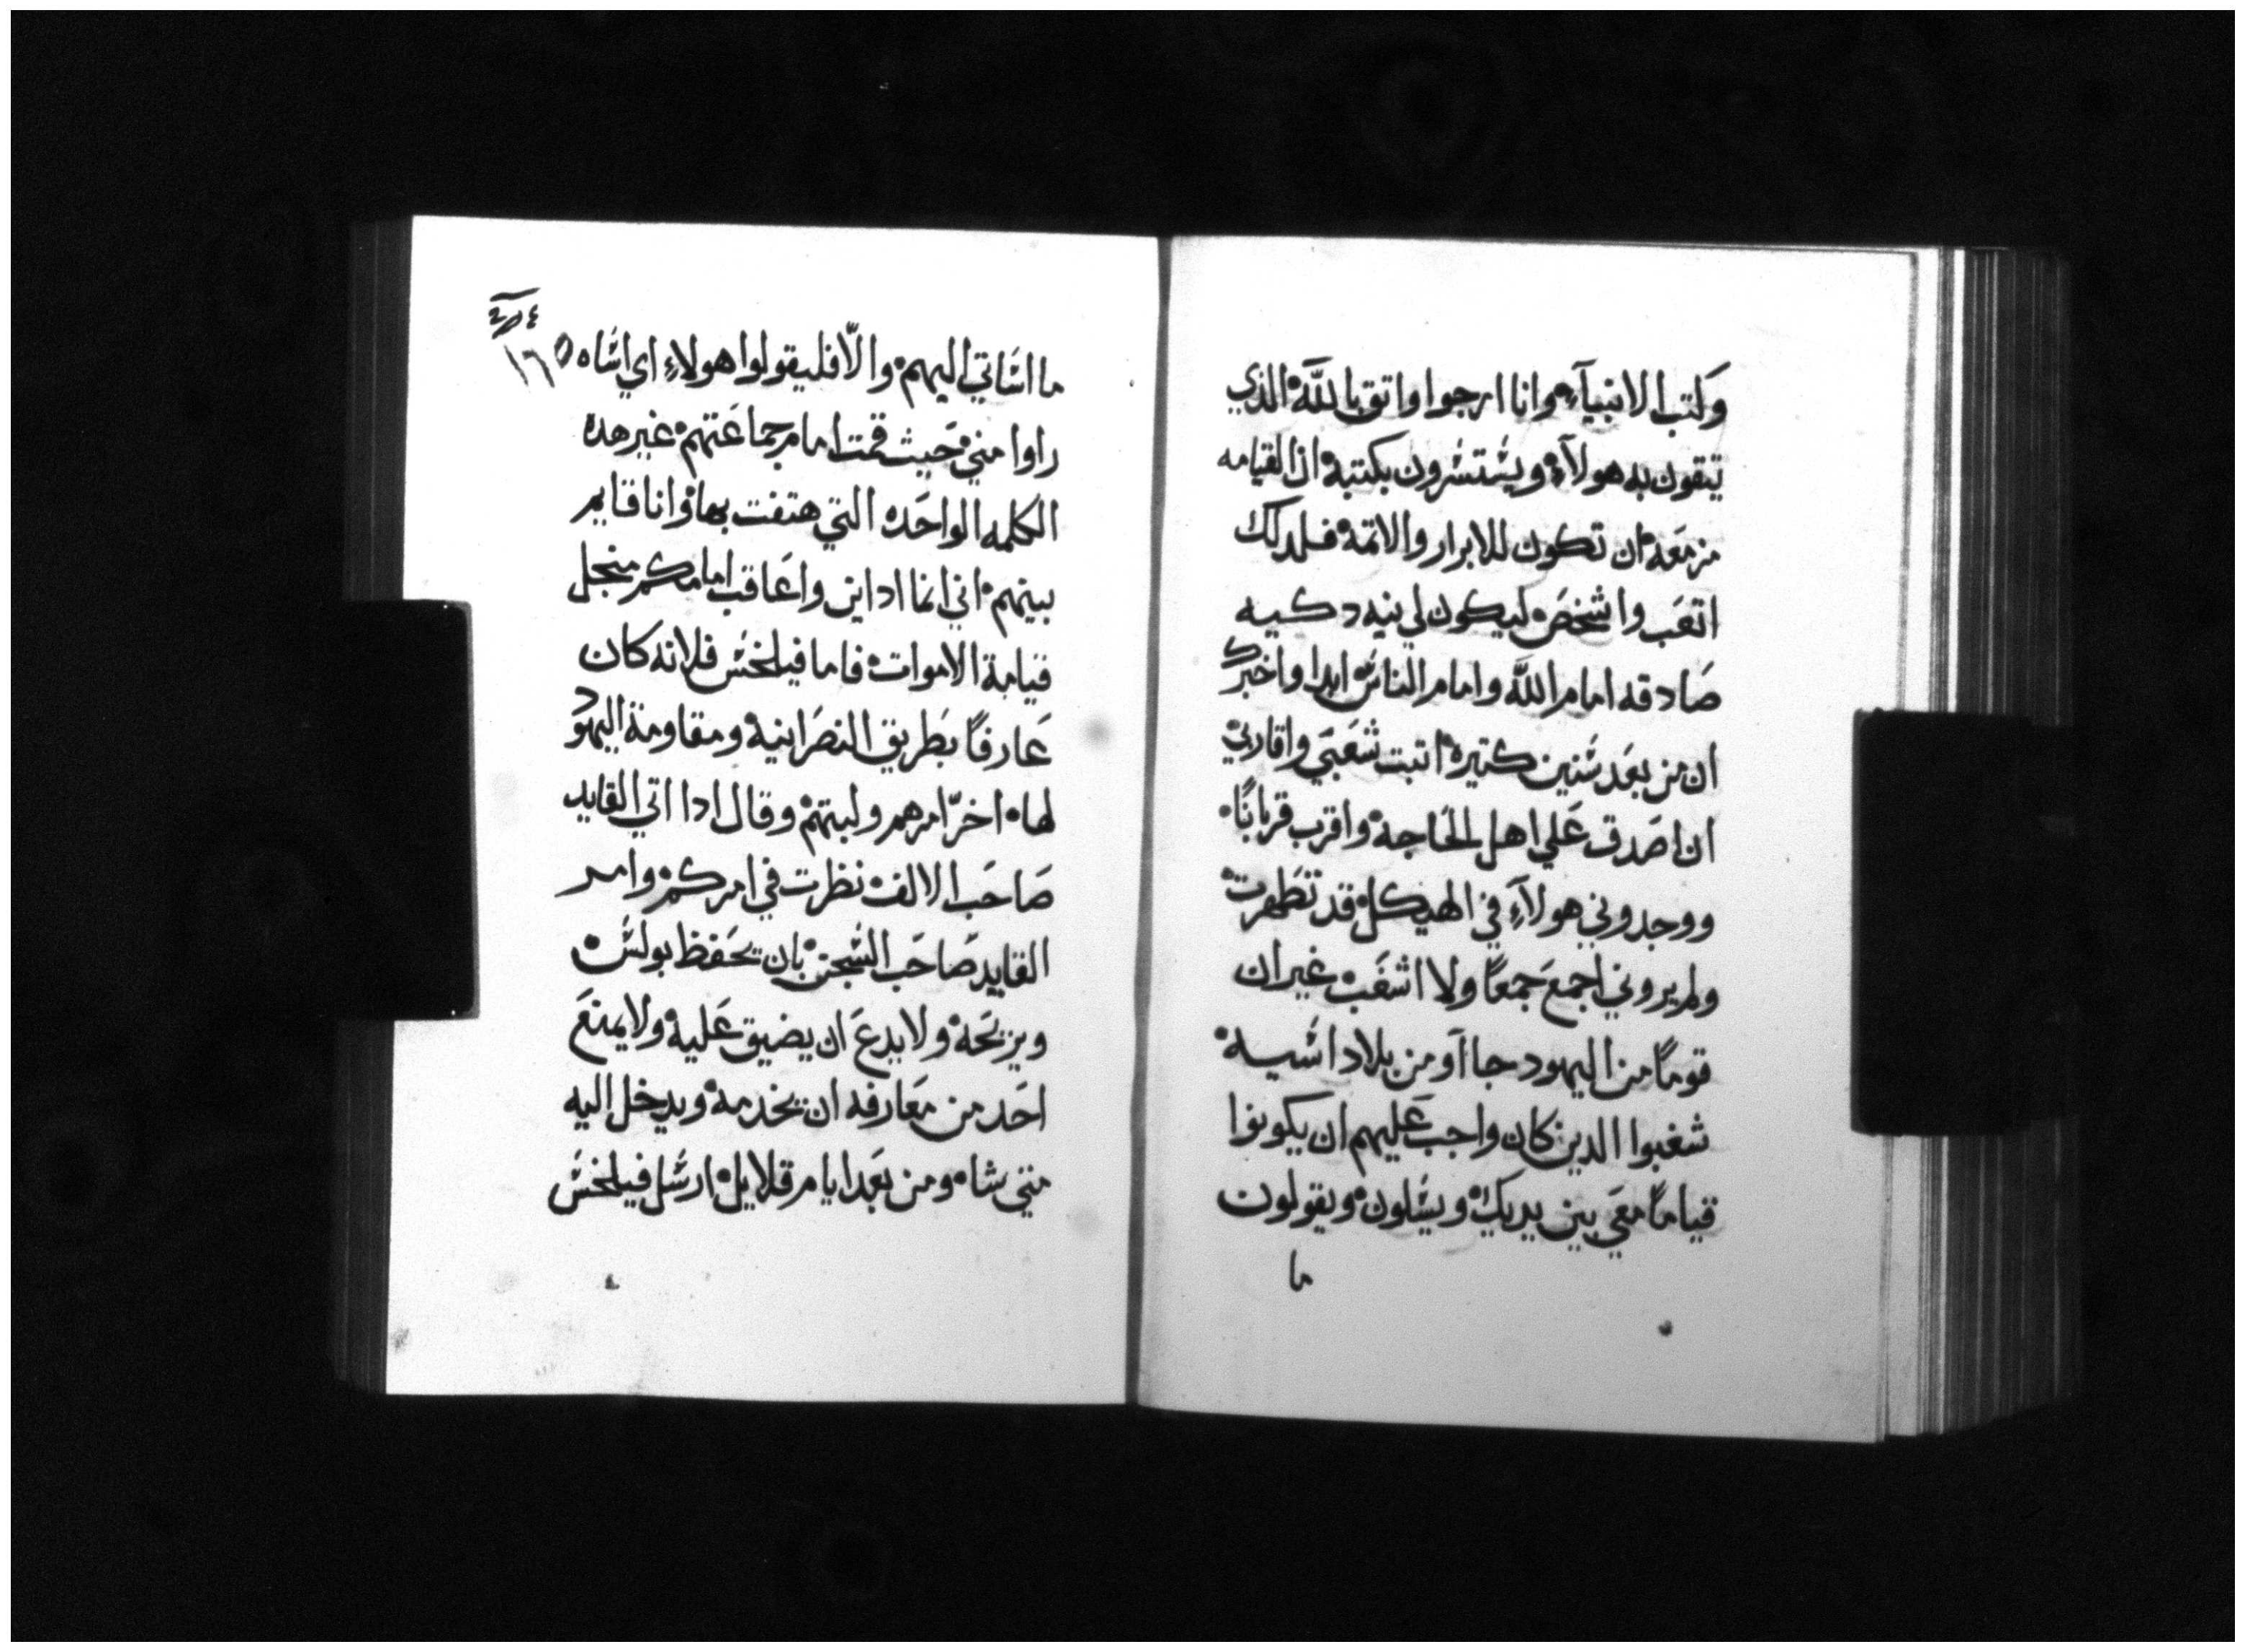 وكتب الانبيآء وانا ارجوا واتق بالله الدي
تيقون به هولآء ويشتشرون بكتبة ان القيامه
مزمعه ان تكون للابرار والاتمة فلدلك
اتعب واشخص ليكون لي نيه دكيه
صادقه امام الله وامام الناس ابدا واخبرك
ان من بعد سنين كتيره اتيت شعبي واقاربي
ان اصدق علي اهل الحاجة واقرب قربانًا
ووجدوني هولآء في الهيكل قد تطهرت
ولم يروني اجمع جمعًا ولا اشغب غير ان
قومًا من اليهود جاآو من بلاد اسيه
شغبوا الدين كان واجب عليهم ان يكونوا
قيامًا معي بين يديك ويسلون ويقولون
ما
٢٥٤
١٦٥
ما اساتي اليهم والّا فليقولوا هولاء اي اساه
راوا مني حيث قمت امام جماعتهم غير هده
الكلمه الواحده التي هتفت بها وانا قايم
بينهم اني انما اداين واعاقب امامكم من جل
قيامة الاموات فاما فيلخس فلانه كان
عارفًا بطريق النصرانية ومقاومة اليهود
لها اخرّ امرهم ولبتهم وقال ادا اتي القايد
صاحب الالف نظرت في امركم وامر
القايد صاحب السجن بان يحفظ بولس
ويزيحة ولا يدع ان يضيق عليه ولا يمنع
احد من معارفه ان يخدمة ويدخل اليه
متي شاه ومن بعد ايام قلايل ارسل فيلخس